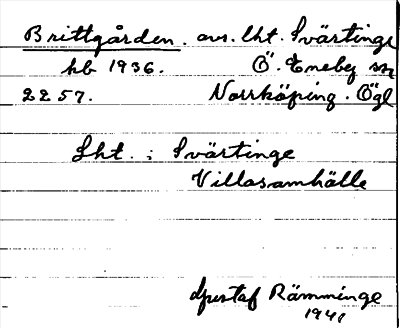 Brittgården. avs. lht. Svärtinge
kb 1936. Ö. Eneby sn
2257. Norrköping. Ögl
Lht. : Svärtinge
Villasamhälle
Gustaf Rämminge
1941